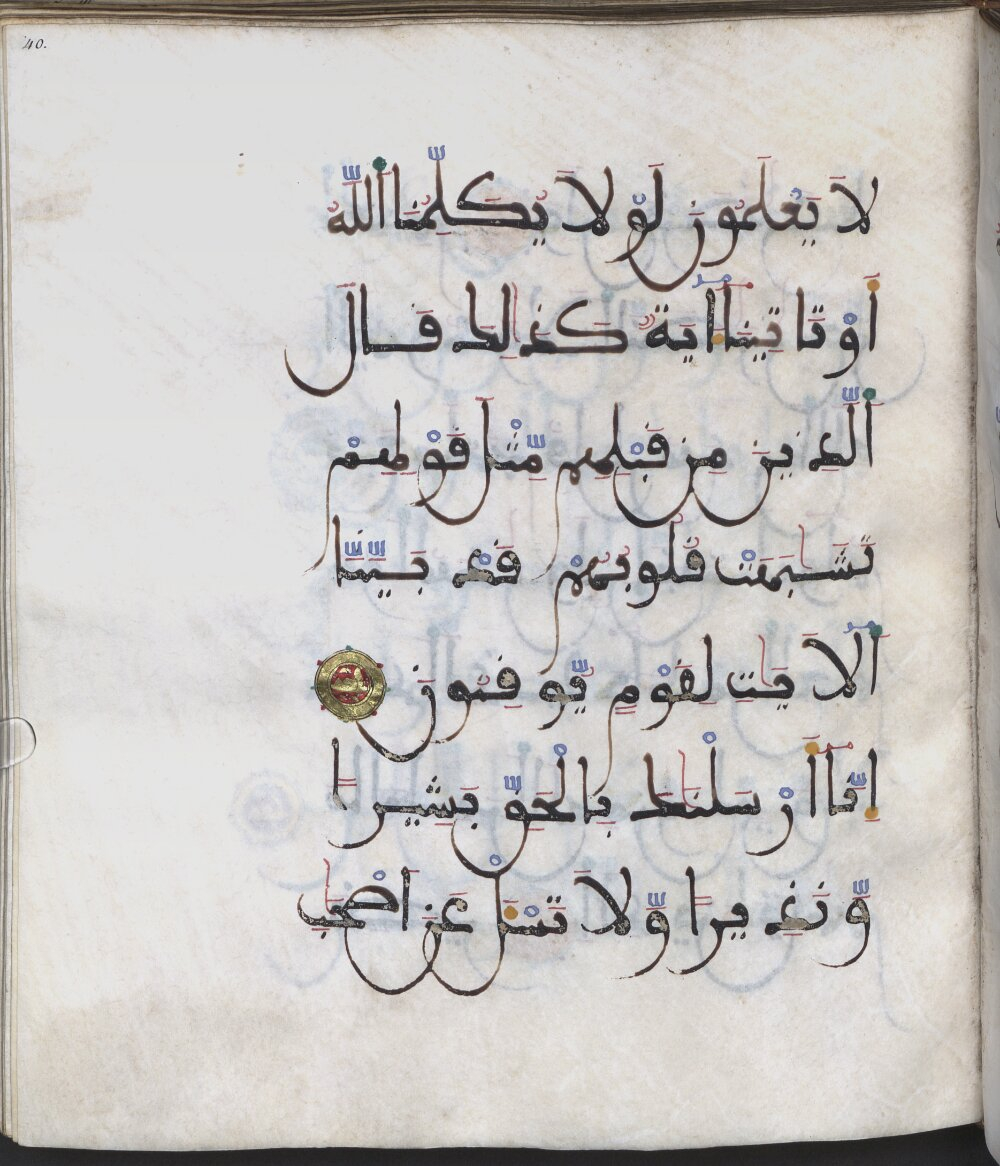 40.
لَا يَعْلَمُونَ لَوْلَا يُكَلِّمُنَا اَللَّهُ
أَوْ تَاتِينَا ءَايَةٌ كَذَٰلِكَ قَالَ
اَلَّذِينَ مِن قَبْلِهِم مِّثْلَ قَوْلِهِمْ
تَشَٰبَهَتْ قُلُوبُهُمْ قَدْ بَيَّنَّا
اَلَايَٰتِ لِقَوْمٍ يُّوقِنُونَ
إِنَّا أَرْسَلْنَٰكَ بِالْحَقِّ بَشِيراً
وَّنَذِيراً وَّلَا تَسْـَٔلْ عَنْ اَصْحَٰبِ